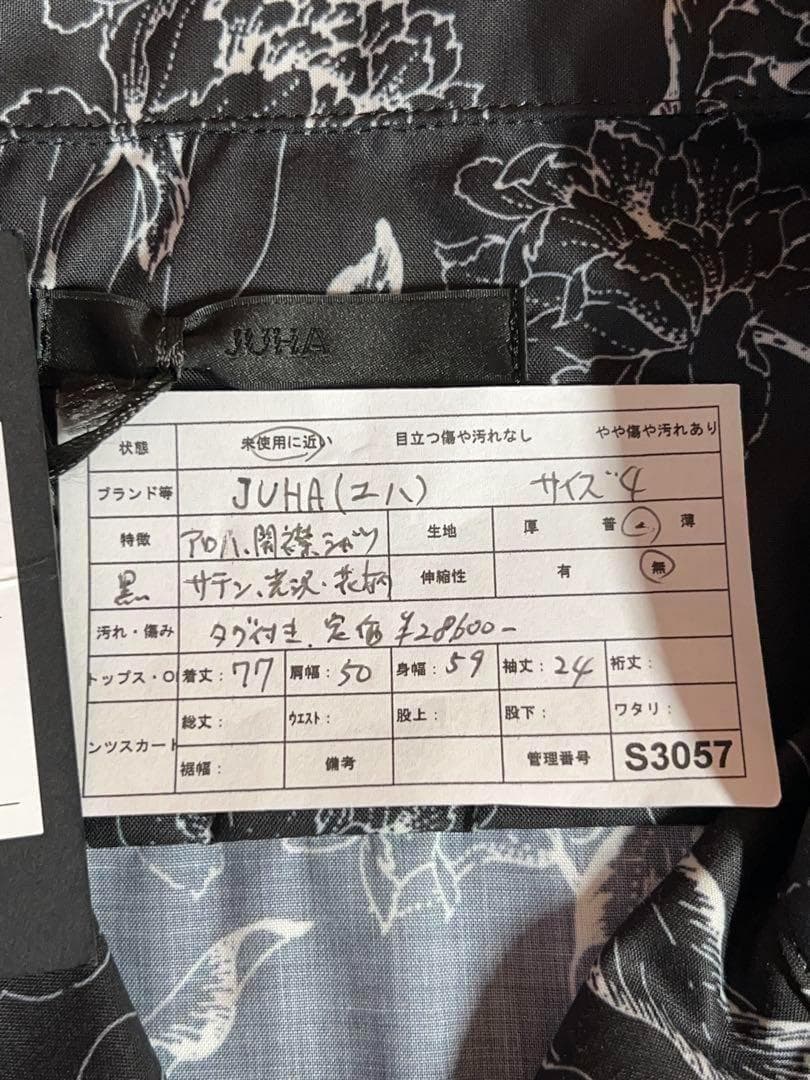 JUHA
状態 未使用に近い 目立つ傷や汚れなし やや傷や汚れあり
ブランド等 JUHA(ユハ) サイズ4
特徴 アロハ、開襟シャツ 生地 厚 普 薄
黒 サテン、光沢・花柄 伸縮性 有 無
汚れ・傷み タグ付き、定価¥28600-
トップス・O 着丈:77 肩幅:50 身幅:59 袖丈:24 裄丈:
ンツスカート 総丈: ウエスト: 股上: 股下: ワタリ:
裾幅: 備考 管理番号 S3057